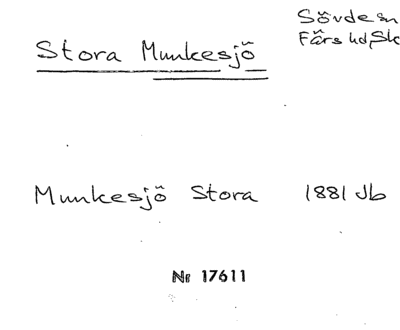 Sövde sn
Färs hd, Sk
Stora Munkesjö
Munkesjö Stora 1881 Jb
Nr 17611